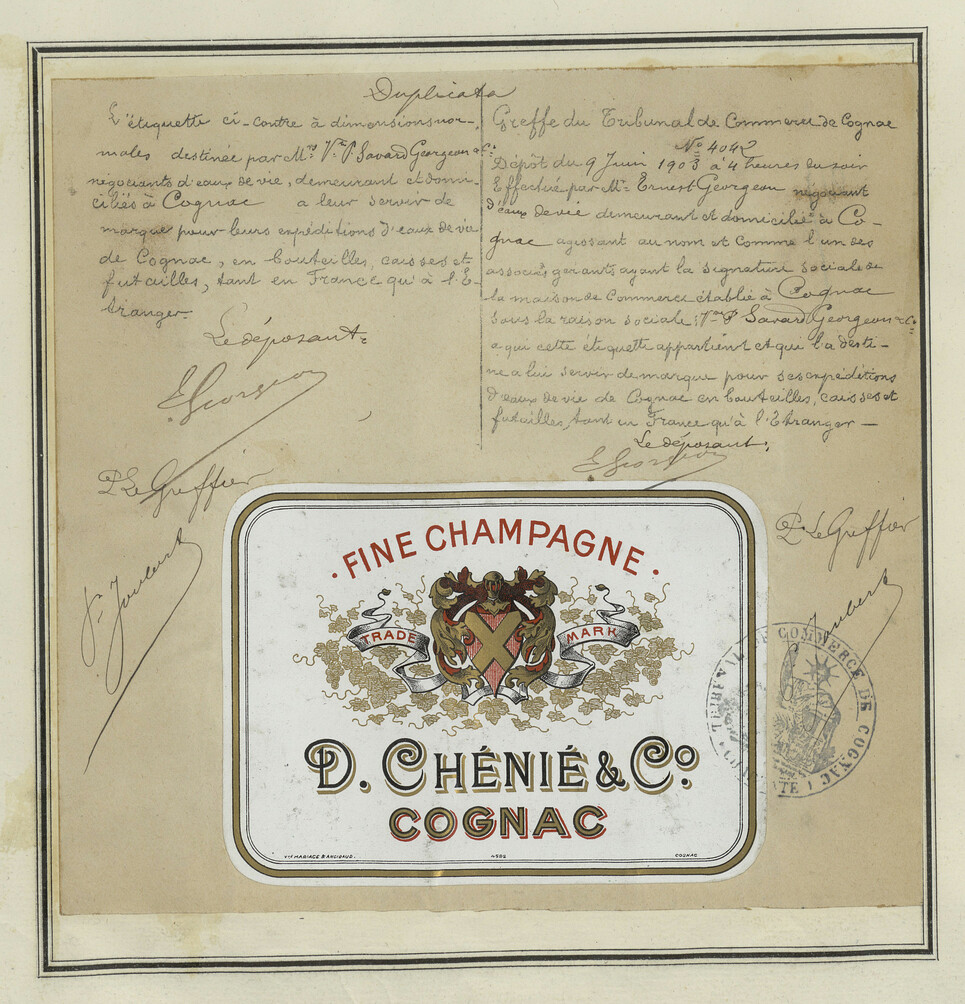 Duplicata
L'étiquette ci-contre à dimensions nor-
males destinée par Mrs Vve P. Savard Georgeon & Cie
négociants d'eaux de vie, demeurant et domi-
ciliés à Cognac a leur servir de
marque pour leurs expéditions d'eaux de vie
de Cognac, en bouteilles, caisses et
futailles, tant en France qu'à l'É-
tranger.
Le déposant:
E Georgeon
P. Le Greffier
Joubert
Greffe du Tribunal de Commerce de Cognac
No 4042
Dépôt du 9 Juin 1903 à 4 heures du soir
Effectué par Mr Ernest Georgeon négociant
d'eaux de vie demeurant et domicilié à Co-
gnac agissant au nom et comme l'un des
associés gérants ayant la signature sociale de
la maison de Commerce établie à Cognac
sous la raison sociale: Vve P Savard Georgeon & Co
a qui cette étiquette appartient et qui l'a desti-
né a lui servir de marque pour ses expéditions
d'eaux de vie de Cognac en bouteilles, caisses et
futailles, tant en France qu'à l'Étranger —
Le déposant:
E Georgeon
P. Le Greffier
Joubert
· FINE CHAMPAGNE ·
TRADE MARK
D. CHÉNIÉ & Co
COGNAC
4502
COGNAC
TRIBUNAL DE COMMERCE DE COGNAC